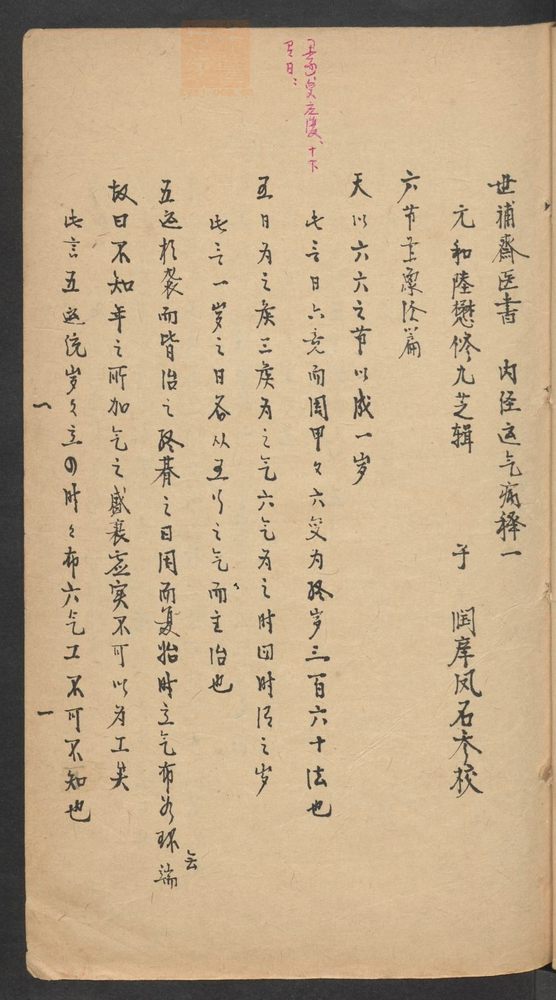 世補齋医書　内径运气病釋一
元和陸懋修九芝辑　　子　润庠凤石参校
六节葳象论篇
天以六六之节以成一岁
此言日六竟而周甲々六复为终岁三百六十法也
五日为之侯三侯为之气六气为之时四时为之岁
此言一岁之日各从五行之气而主治也
五运相袭而皆治之终朞之日周而复始时立气布如环无端
故曰不知年之所加气之盛衰虚实不可以为工矣
此言五运统岁々立四时々布六气工不可不知也